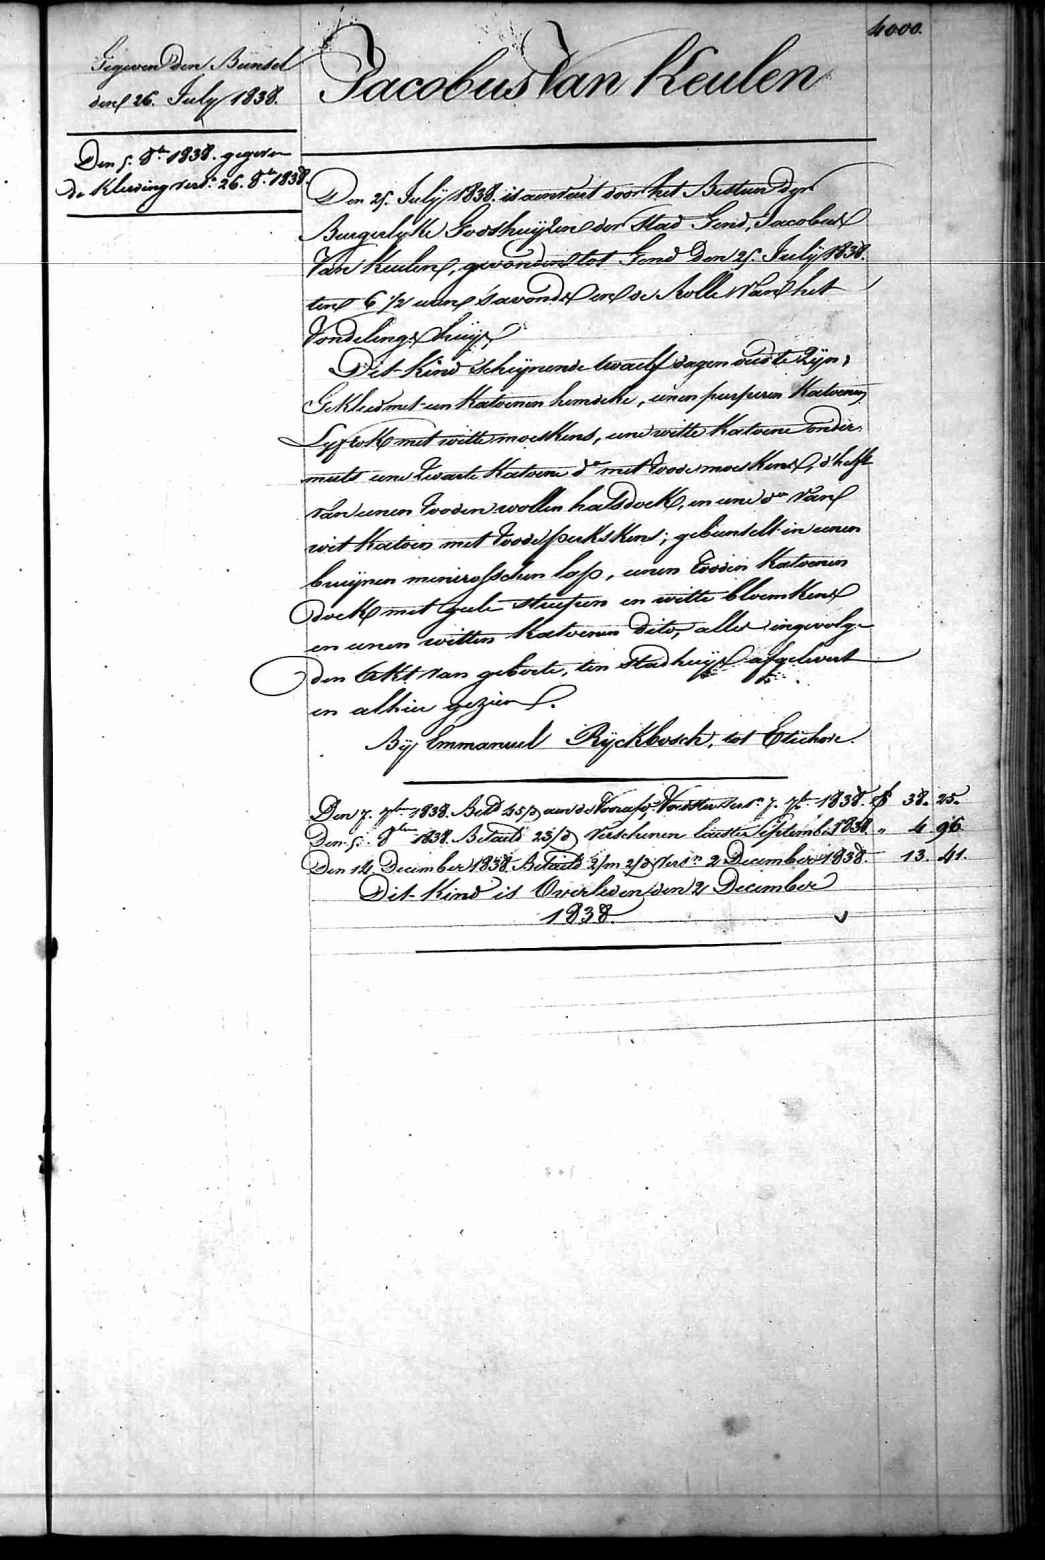 4000.
Gegeven Den Bunsel
den 26. July 1838.
Den 5. 8.br 1838. gegeven
de Kleeding vers.n 26. 8.br 1838.
Jacobus Van Keulen
Den 25. July 1838. is aenveirt door het Bestuer dyr
Burgerlyke Godshuyzen der Stad Gend, Jacobus
Van Keulen, gevonden tot Gend Den 25. July 1838.
ten 6 1/2 uren s'avonds in de Rolle van het
Vondelingshuys
Dit Kind schynende twaelf dagen oud te zyn,
Gekleed met een Katoenen hemdeke, eenen purperen Katoenen
Lyfrok met witte moeskens, eene witte Katoene onder=
muts eene Zwarte Katoene d.o met roode moeskens, d'helft
van eenen rooden wollen halsdoek, en eene d.o van
wit Katoen met roode perkskens; gebunselt in eenen
bruynen lap, eenen rooden Katoenen
doek met geele streepen en witte bloemkens
en eenen witten Katoenen dito, alles ingevolge
den Akt van geboorte, ten Stadhuyse afgelevert
en alhier gezien.
By Emmanuel Ryckbosch, tot Etichove.
Den 7. 7.br 1838. Bet.d 45/d aen de Voorsz. Voedster vers.n 7. 7.br 1838. f 38. 25.
Den 5. 8.br 1838. Betaeld 23/d Verschenen laetste September 1838. " 4 96
Den 14 December 1838. Betaeld 2/m 2/d vers.n 2 December 1838. 13. 41.
Dit Kind is Overleden den 2 December
1838.